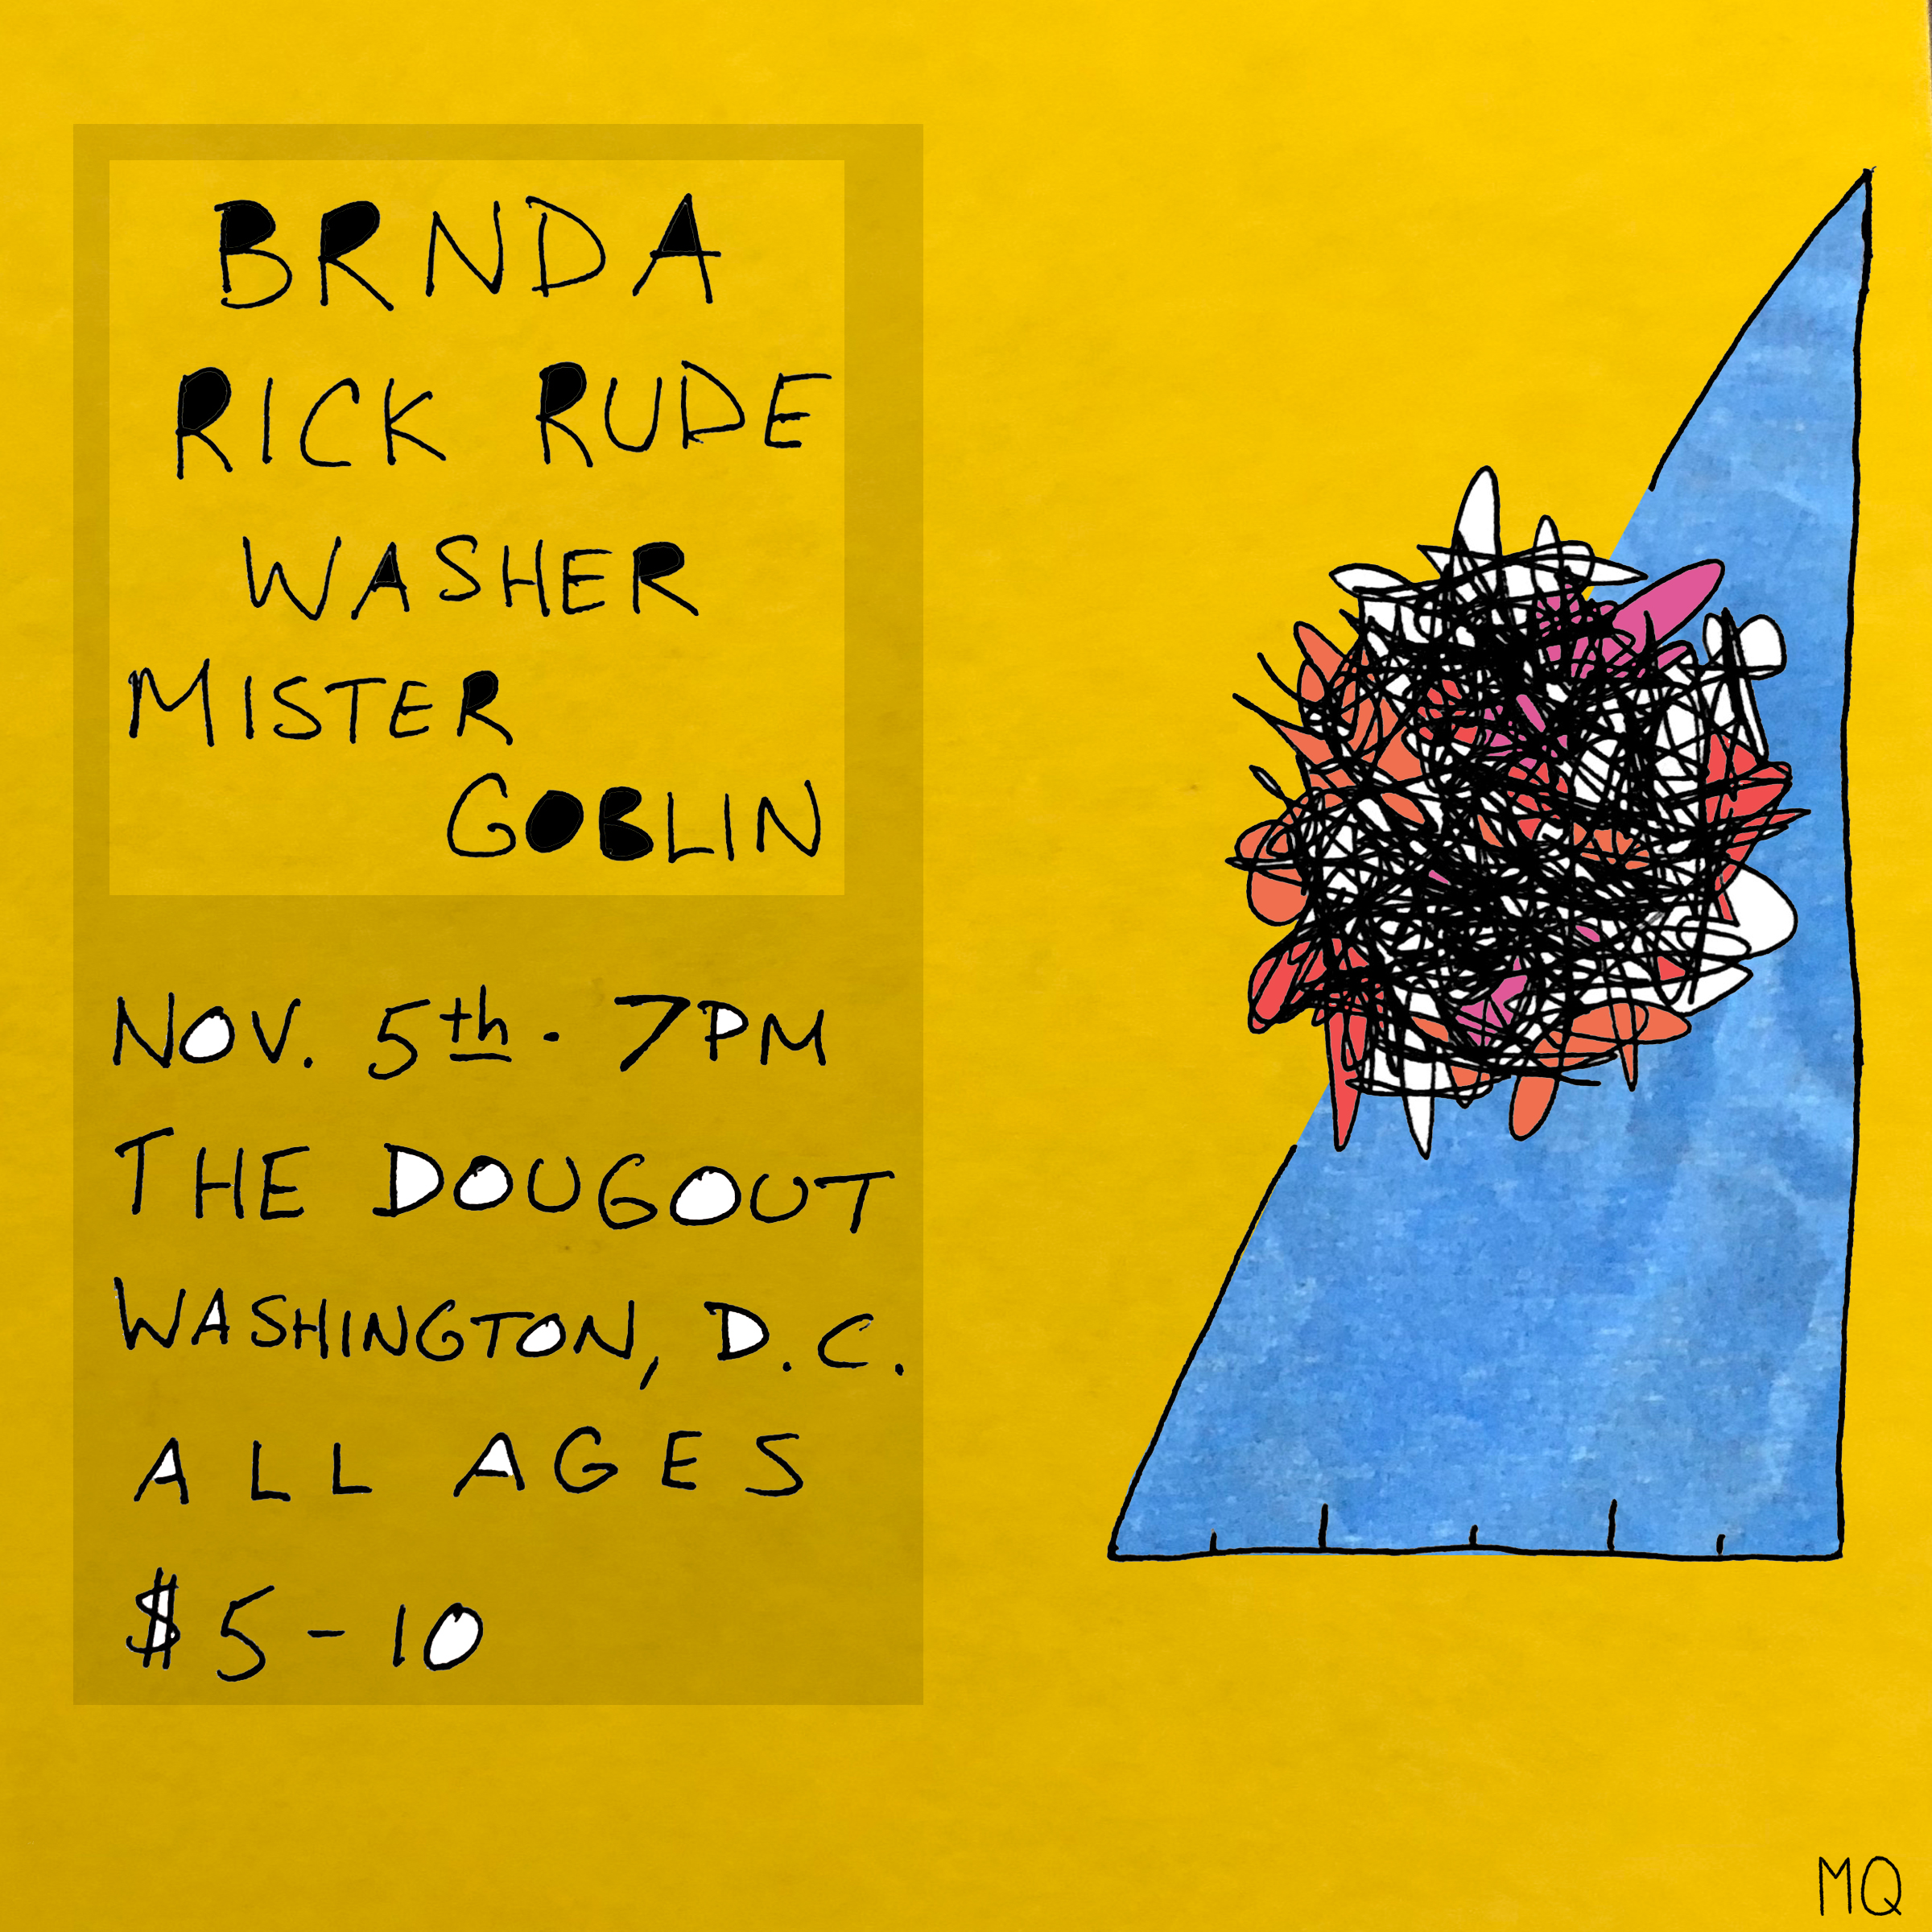 BRNDA
RICK RUDE
WASHER
MISTER
GOBLIN
NOV. 5th · 7PM
THE DOUGOUT
WASHINGTON, D.C.
ALL AGES
$5-10
MQ